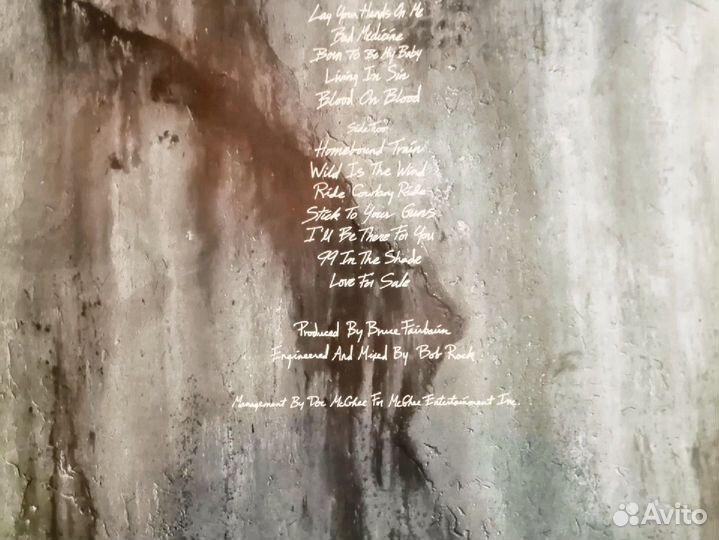 Lay Your Hands On Me
Bad Medicine
Born To Be My Baby
Living In Sin
Blood On Blood
Side Two
Homebound Train
Wild Is The Wind
Ride Cowboy Ride
Stick To Your Guns
I'll Be There For You
99 In The Shade
Love For Sale
Produced By Bruce Fairbairn
Engineered And Mixed By Bob Rock
Management By Doc McGhee For McGhee Entertainment Inc.
Avito